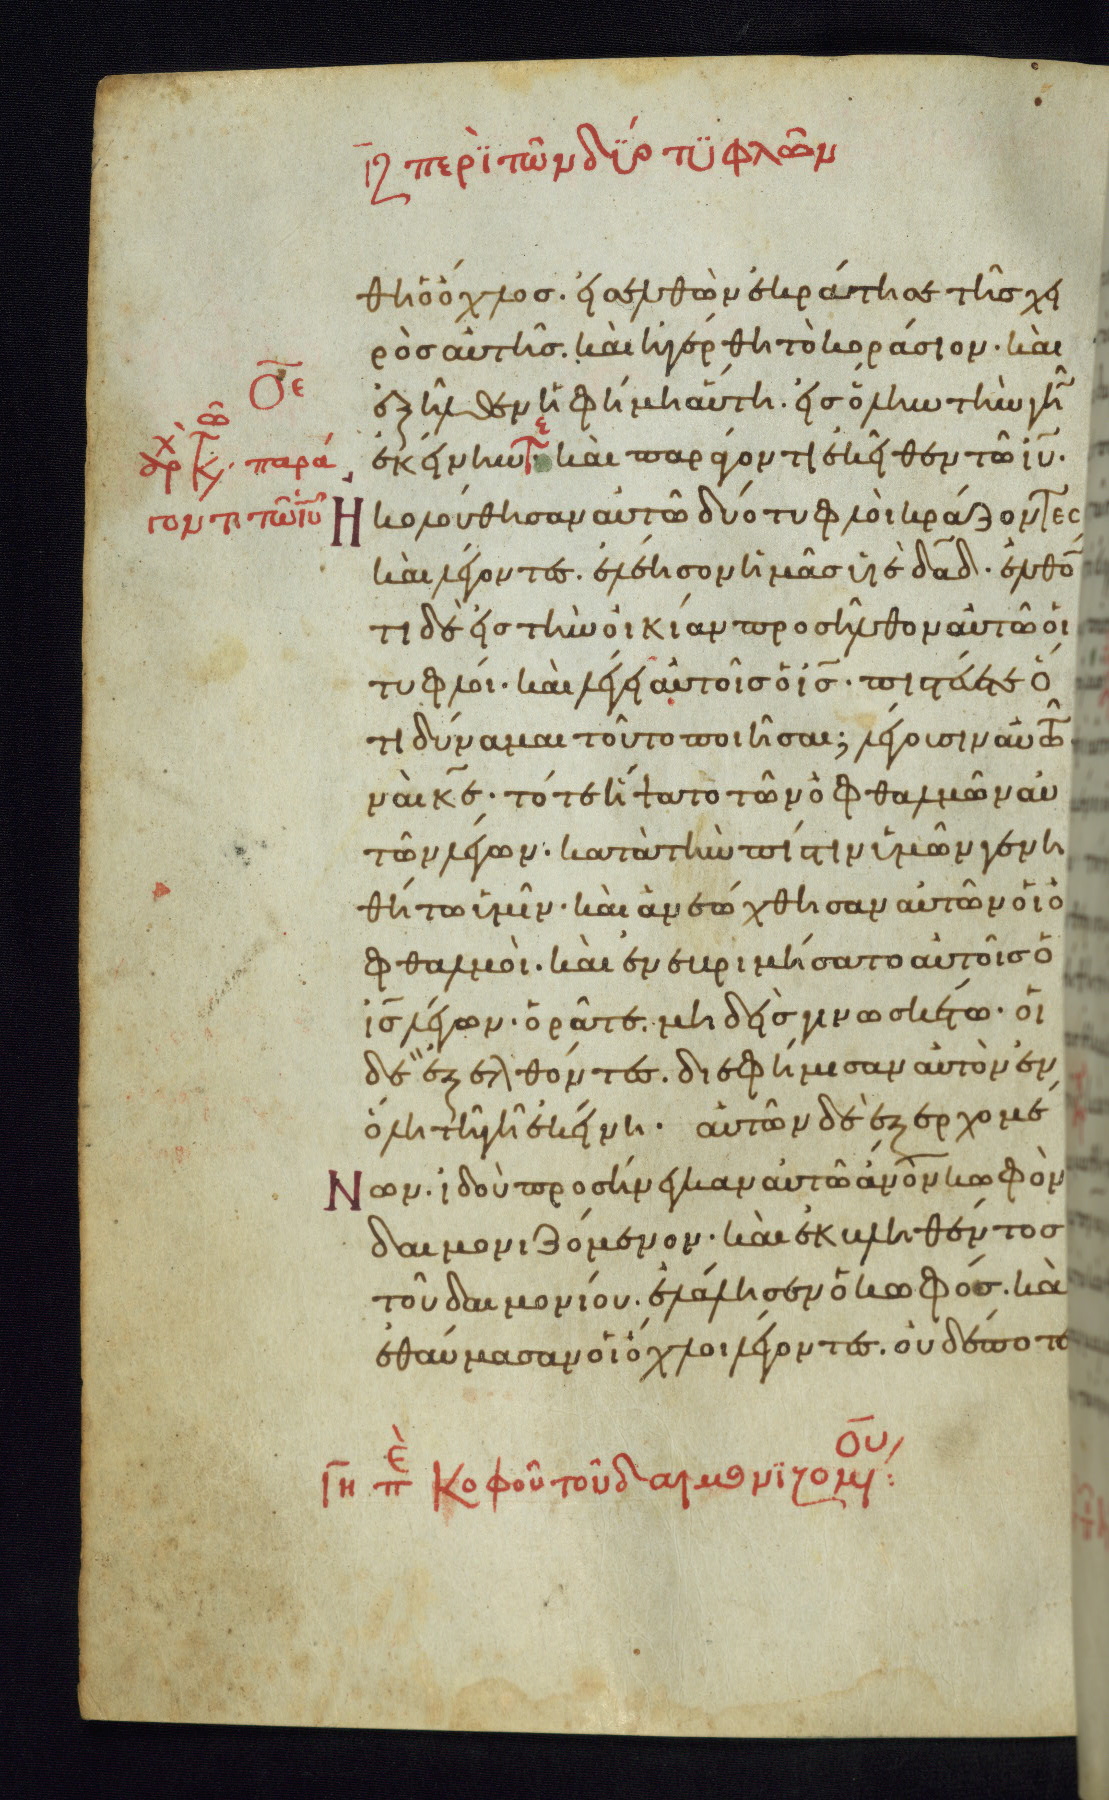 ιζ περὶ τῶν δύο τυφλῶν
θη ὁ ὄχλος. εἰσελθὼν ἐκράτησε τῆς χει
ρὸς αὐτῆς. καὶ ἠγέρθη τὸ κοράσιον. καὶ
ἐξῆλθεν ἡ φήμη αὕτη. εἰς ὅλην τὴν γῆν
ἐκείνην. καὶ παράγοντι ἐκεῖθεν τῶ ιυ.
Ηκολούθησαν αὐτῶ δύο τυφλοὶ κράζοντες
καὶ λέγοντες. ἐλέησον ἡμᾶς υἱὲ δαδ. ἐλθό
τι δὲ εἰς τὴν οἰκίαν προσῆλθον αὐτῶ οἱ
τυφλοί. καὶ λέγει αὐτοῖς ὁ ις. πιστεύετε ὅ
τι δύναμαι τοῦτο ποιῆσαι; λέγουσιν αὐτῶ
ναὶ κε. τότε ἥψατο τῶν ὀφθαλμῶν αὐ
τῶν λέγων. κατὰ τὴν πίστιν ὑμῶν γενη
θήτω ὑμῖν. καὶ ἀνεώχθησαν αὐτῶν οἱ ὀ
φθαλμοὶ. καὶ ἐνεβριμήσατο αὐτοῖς ὁ
ις λέγων. ὁρᾶτε. μηδεὶς γινωσκέτω. οἱ
δὲ ἐξελθόντες. διεφήμισαν αὐτὸν ἐν
ὅλη τῆ γῆ ἐκείνη. αὐτῶν δὲ ἐξερχομέ
Νων. ἰδοὺ προσήνεγκαν αὐτῶ ἀνον κωφὸν
δαιμονιζόμενον. καὶ ἐκβληθέντος
τοῦ δαιμονίου. ἐλάλησεν ὁ κωφός. καὶ
ἐθαύμασαν οἱ ὄχλοι λέγοντες. οὐδέποτε
ιη πε Κοφοῦ τοῦ δαιμονιζομου:
παρά
γοντι τῶ ιυ